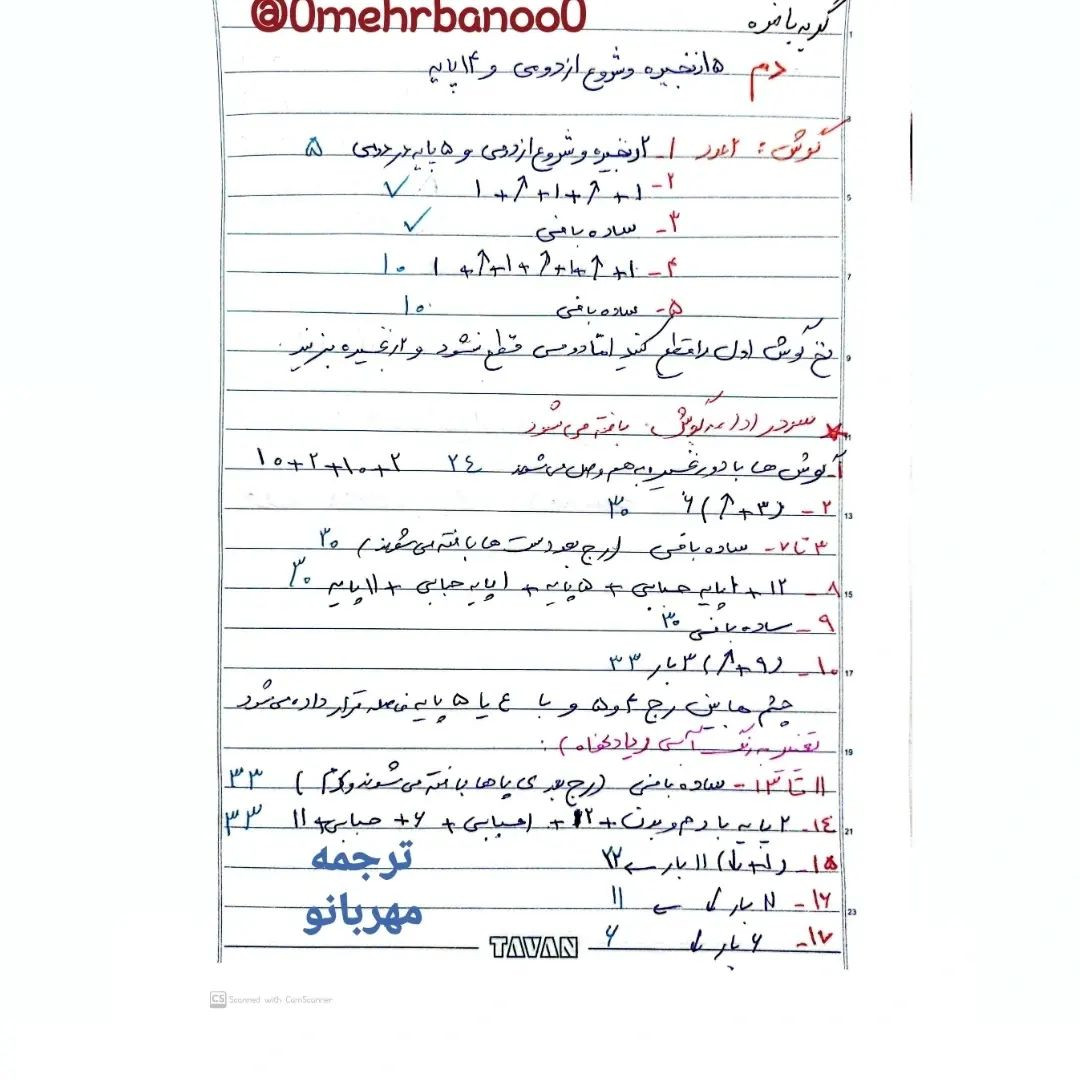 @0mehrbanoo0
گربه بامزه
دم ۱۵ زنجیره و شروع از دومی و ۱۴ پایه
گوش: ۲ عدد ۱- ۲ زنجیره و شروع از دومی و ۵ پایه در دومی ۵
۲- ۱+↑+۱+↑+۱ ۷
۳- ساده بافی ۷
۴- ۱+↑+۱+↑+۱+↑+۱ ۱۰
۵- ساده بافی ۱۰
نخ گوش اول را قطع کنید اما دومی قطع نشود و ۲ زنجیره بزنید.
سر در ادامه گوش بافته می‌شود
۱- گوش ها با دو زنجیره به هم وصل می‌شوند ۲٤ ۲+۱۰+۲+۱۰
۲- (۳+↑) ۶ ۳۰
۳ تا ۷- ساده بافی (رج بعد دست ها بافته می‌شوند) ۳۰
۸- ۱۲ + ۱ پایه حبابی + ۵ پایه + ۱ پایه حبابی + ۱۱ پایه ۳۰
۹- ساده بافی ۳۰
۱۰- (۹+↑) ۳ بار ۳۳
چشم ها بین رج ۴ و ۵ و با ٤ یا ۵ پایه فاصله قرار داده می‌شود
تغییر به رنگ آبی (دلخواه):
۱۱ تا ۱۳- ساده بافی (رج بعدی پاها بافته می‌شوند و دم) ۳۳
۱٤- ۲ پایه با دم و بدن + ۱۲ + ۱ حبابی + ۶ + حبابی + ۱۱ ۳۳
۱۵- ۱۱ بار ← ۲۲
۱۶- ۱۱ بار ← ۱۱
۱۷- ۶ بار ۶
ترجمه
مهربانو
TAVAN
CS Scanned with CamScanner